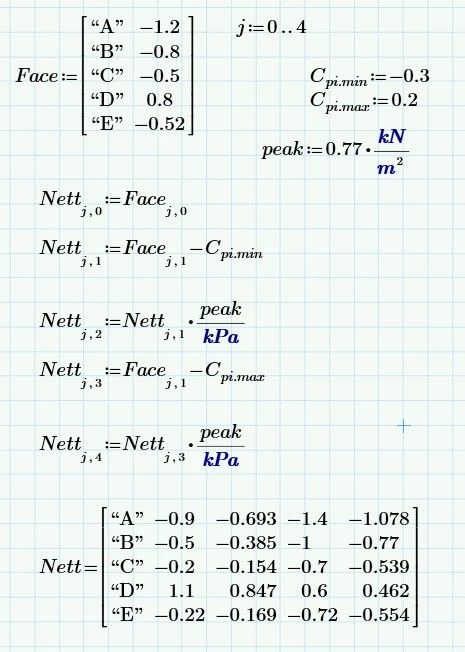 Face:=[“A” −1.2  j:=0..4
“B” −0.8
“C” −0.5  C_pi.min:=−0.3
“D” 0.8  C_pi.max:=0.2
“E” −0.52]
peak:=0.77·kN/m²
Nett_j,0:=Face_j,0
Nett_j,1:=Face_j,1−C_pi.min
Nett_j,2:=Nett_j,1·peak/kPa
Nett_j,3:=Face_j,1−C_pi.max
Nett_j,4:=Nett_j,3·peak/kPa
Nett=[“A” −0.9 −0.693 −1.4 −1.078
“B” −0.5 −0.385 −1 −0.77
“C” −0.2 −0.154 −0.7 −0.539
“D” 1.1 0.847 0.6 0.462
“E” −0.22 −0.169 −0.72 −0.554]